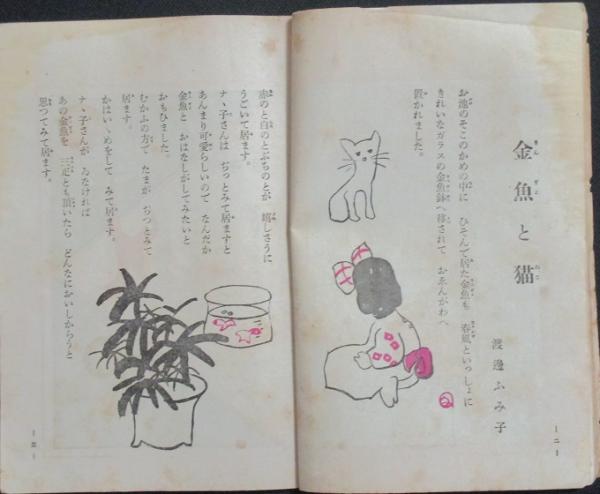 金魚と猫
渡邊ふみ子
お池のそこのかめの中に ひそんで居た金魚も 春風といつしよに
きれいなガラスの金魚鉢へ移されて おゑんがわへ
置かれました。
―(二)―
赤のと白のとぶちのとが 嬉しさうに
うごいて居ます。
ナヽ子さんは ぢつとみて居ますと
あんまり可愛らしいので なんだか
金魚と おはなしがしてみたいと
おもひました。
むかふの方で たまが ぢつとみて
居ます。
かはいゝめをして みて居ます。
ナヽ子さんが ゐなければ
あの金魚を 三疋とも頂いたら どんなにおいしからうと
思つてみて居ます。
―(三)―